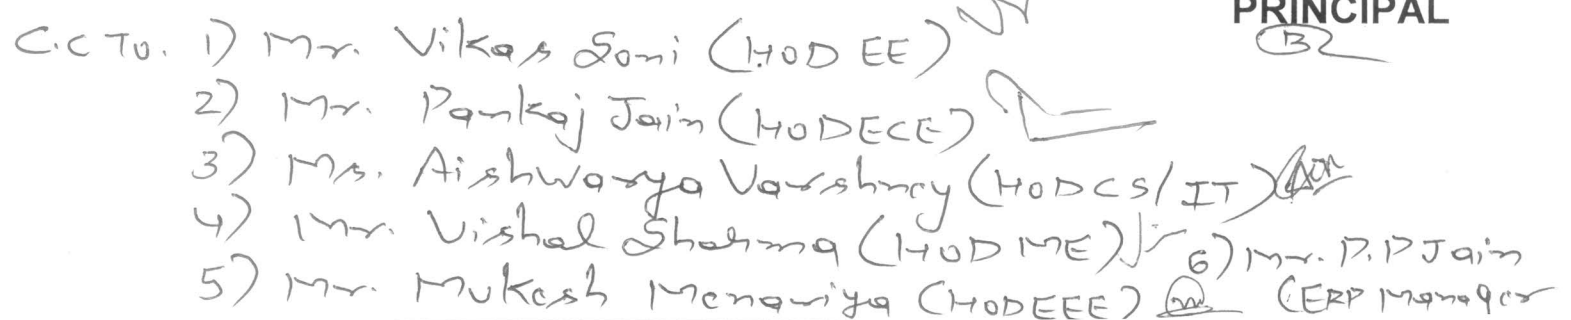 PRINCIPAL
C.C To. 1) Mr. Vikas Soni (HOD EE)
2) Mr. Pankaj Jain (HOD ECE)
3) Ms. Aishwarya Varshney (HOD CS/IT)
4) Mr. Vishal Sharma (HOD ME)
6) Mr. P.P Jain
5) Mr. Mukesh Menariya (HOD EEE)
(ERP Manager